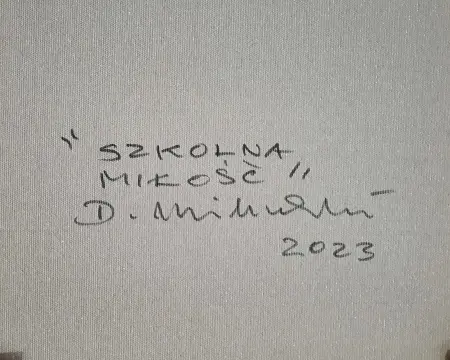 " SZKOLNA
MIŁOŚĆ "
D.
2023